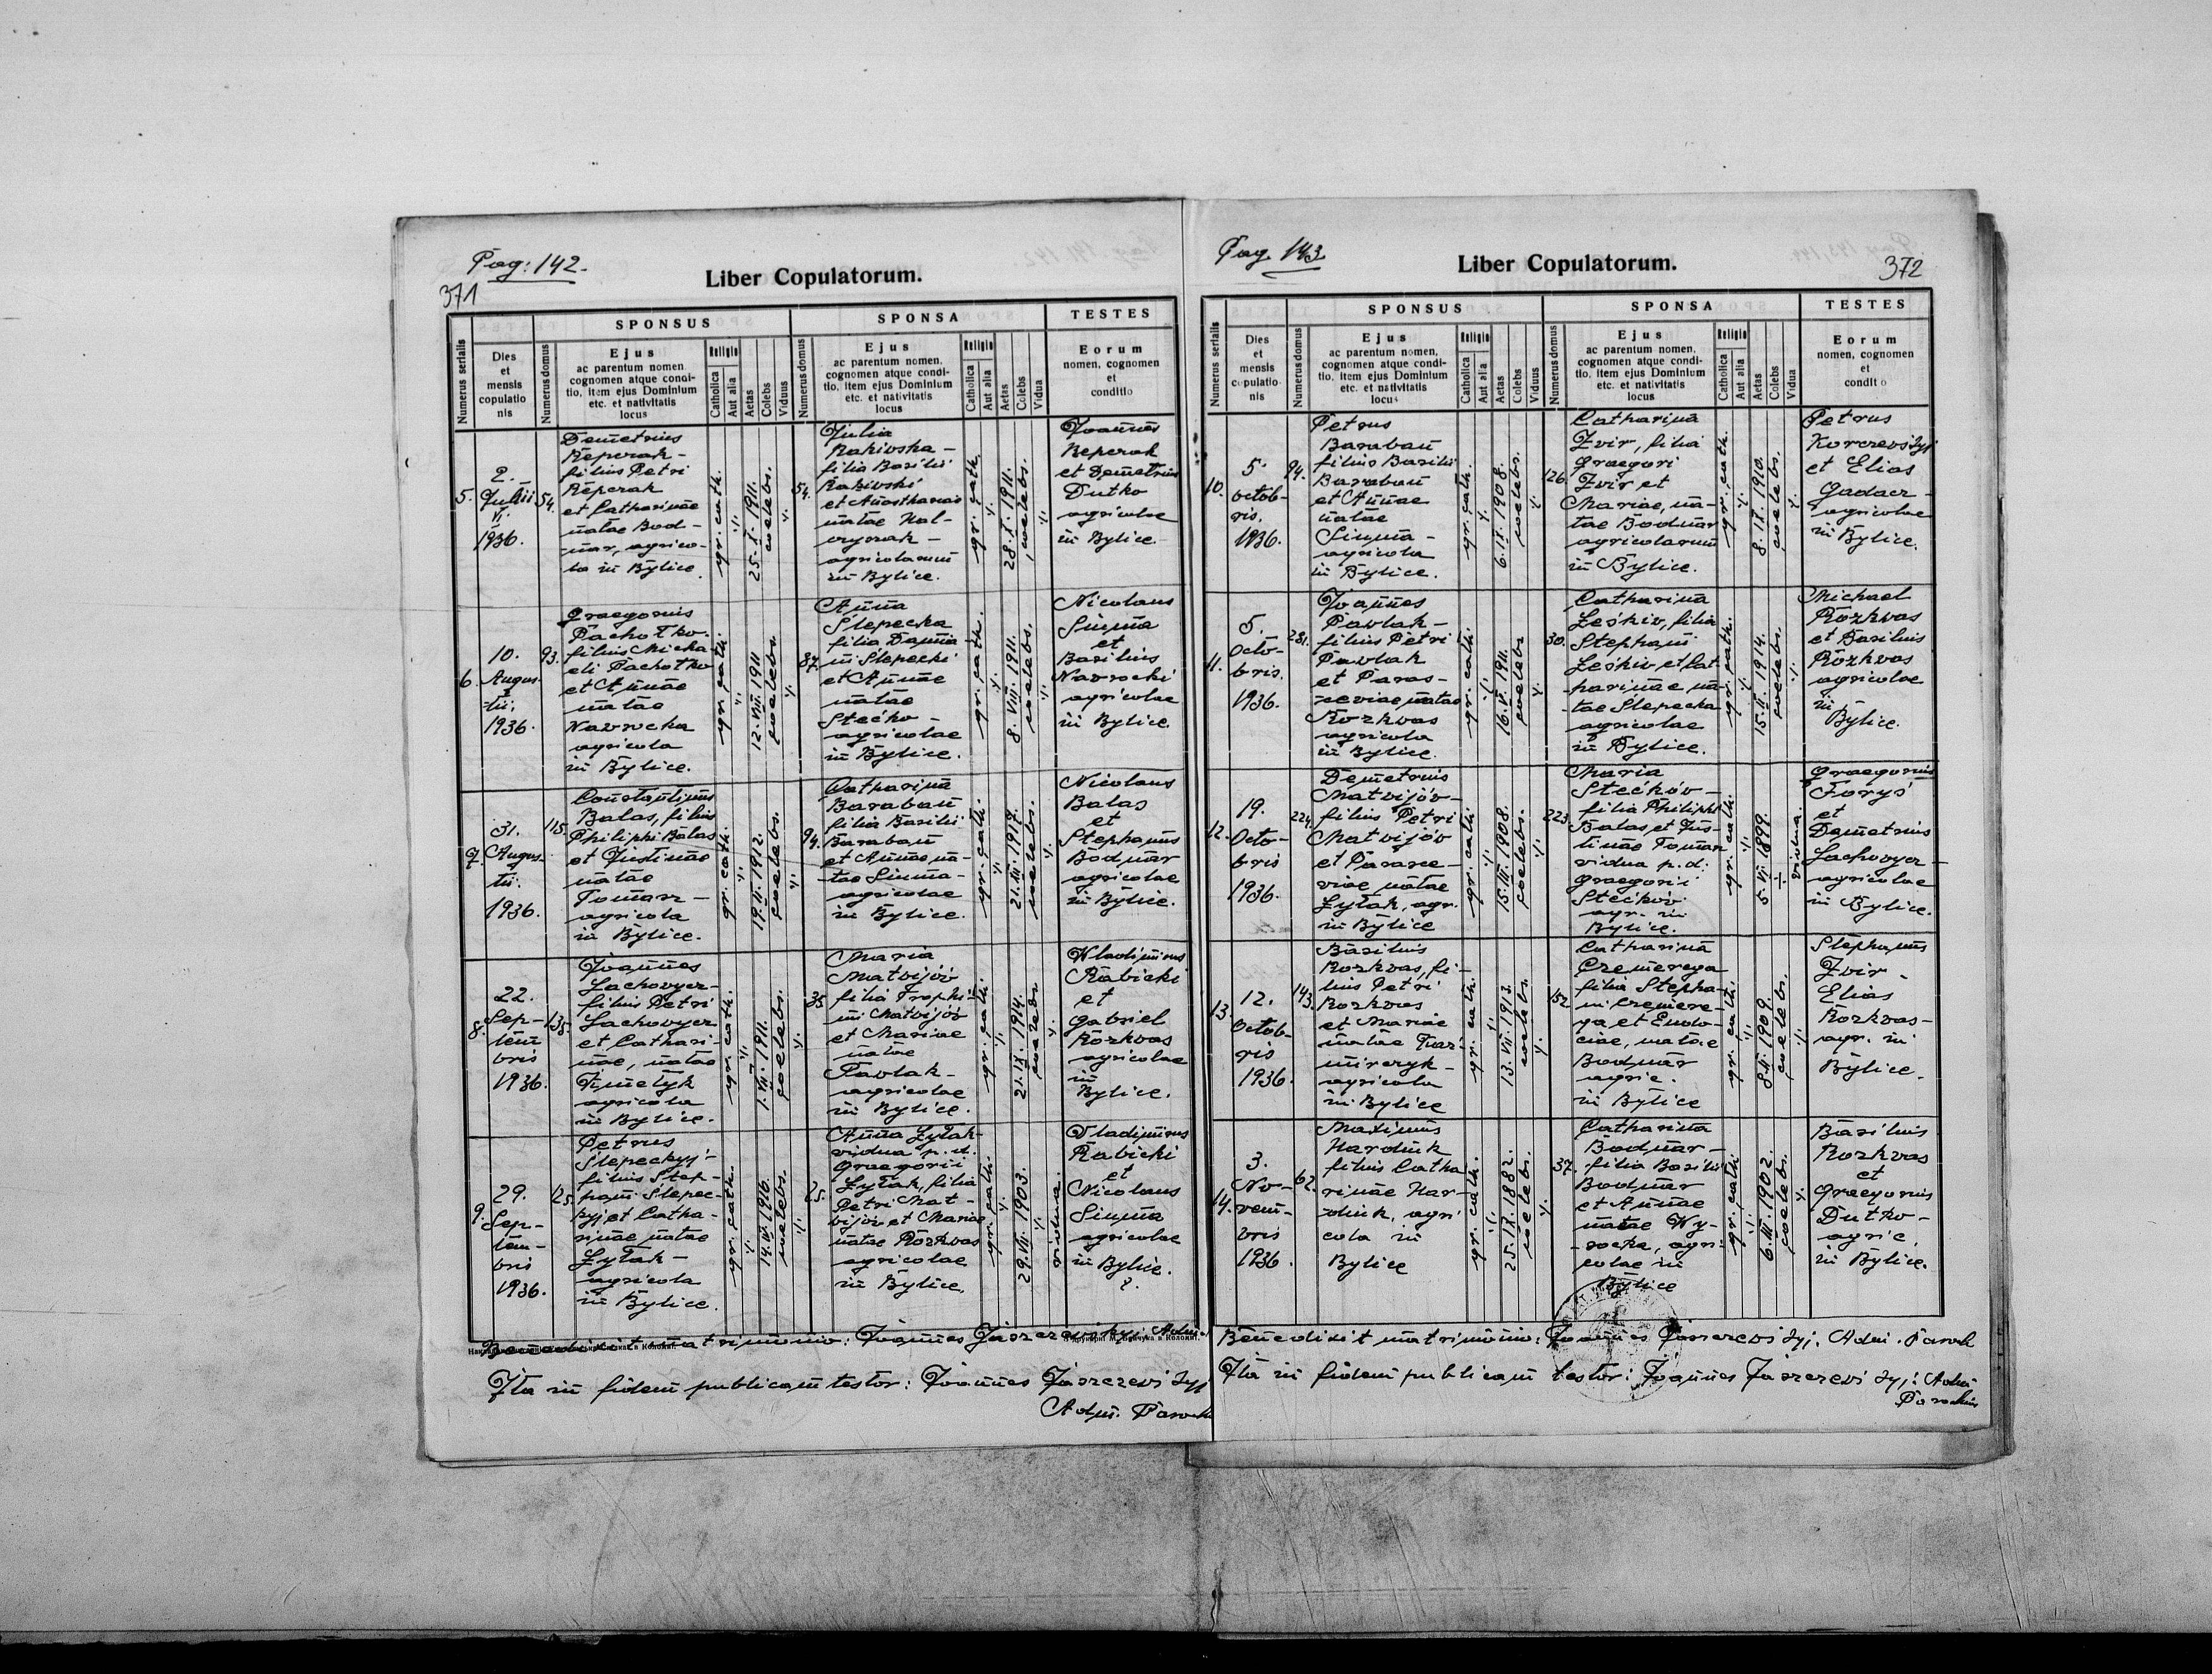 Pag: 142.
371
Liber Copulatorum.
Numerus serialis
Dies
et
mensis
copulatio
nis
Numerus domus
SPONSUS
Ejus
ac parentum nomen,
cognomen atque condi-
tio, item ejus Dominium
etc. et nativitatis
locus
Religio
Catholica
Aut alia
Aetas
Colebs
Viduus
Numerus domus
SPONSA
Ejus
ac parentum nomen,
cognomen atque condi-
tio, item ejus Dominium
etc. et nativitatis
locus
Religio
Catholica
Aut alia
Aetas
Colebs
Vidua
TESTES
Eorum
nomen, cognomen
et
conditio
5.
2.
Julii
1936.
54.
Demetrius
Reperak-
filius Petri
Reperak
et Catharinae
natae Bod-
nar, agrico-
la in Bylice.
gr. cath.
25. X. 1911.
coelebs.
54.
Julia
Rakivska-
filia Basilii
Rakivski
et Anasthasiae
natae Hal-
agricolarum
in Bylice.
gr. cath.
28. X. 1911.
coelebs.
Joannes
Reperak
et Demetrius
Dutko
agricolae
in Bylice.
6.
10.
Augus-
tii.
1936.
93.
Graegorius
Pachołko-
filius Micha-
eli Pachołko
et Annae
natae
Navrocka
agricola
in Bylice.
gr. cath.
12. VIII. 1911
coelebs.
87.
Anna
Slepecka
filia Damia-
ni Slepecki
et Annae
natae
Stećko-
agricolae
in Bylice.
gr. cath.
8. VIII. 1911.
coelebs.
Nicolaus
Sinma
et
Basilius
Navrocki
agricolae
in Bylice.
7.
31.
Augus-
tii.
1936.
115.
Constantinus
Balas, filius
Philiphi Balas
et Justinae
natae
Toman-
agricola
in Bylice.
gr. cath.
19. II. 1912.
coelebs.
94.
Catharina
Baraban
filia Basilii
Baraban
et Annae na-
tae Sinma-
agricolae
in Bylice.
gr. cath.
21. III. 1917.
coelebs.
Nicolaus
Balas
et
Stephanus
Bodnar
agricolae
in Bylice.
8.
22.
Sep-
tem
bris
1936.
138.
Joannes
Lachovycz-
filius Petri
Lachovycz
et Cathari-
nae, natae
agricola
in Bylice.
gr. cath.
1. VII. 1911.
coelebs.
35.
Maria
Matvijóv
filia Trophi-
mi Matvijóv
et Mariae
natae
Pavlak-
agricolae
in Bylice.
gr. cath.
21. IX. 1914.
coelebs.
Wladimirus
Rabicki
et
Gabriel
Rozkvas
agricolae
in
Bylice.
9.
29.
Sep-
tem-
bris
1936.
125.
Petrus
Slepeckyj-
filius Step-
hani Slepec-
kyj et Catha-
rinae natae
Zyłak-
agricola
in Bylice.
gr. cath.
14. III. 1916.
coelebs.
25.
Anna Zyłak-
vidua p. d.
Graegorii
Zyłak, filia
Petri Mat-
vijóv et Mariae
natae Rozkvas
agricolae
in Bylice.
gr. cath.
29. VII. 1903.
vidua.
Vladimirus
Rabicki
et
Nicolaus
Sinma
agricolae
in Bylice.
Benedixit matrimonio: Joannes Jaszczevśkyj: Adm.
Ita in fidem publicam testor: Joannes Jaszczevśkyj
Adm. Paroch
Pag. 143
372
Liber Copulatorum.
Numerus serialis
Dies
et
mensis
copulatio-
nis
Numerus domus
SPONSUS
Ejus
ac parentum nomen,
cognomen atque condi-
tio, item ejus Dominium
etc. et nativitatis
locus
Religio
Catholica
Aut alia
Aetas
Colebs
Viduus
Numerus domus
SPONSA
Ejus
ac parentum nomen,
cognomen atque condi-
tio, item ejus Dominium
etc. et nativitatis
locus
Religio
Catholica
Aut alia
Aetas
Colebs
Vidua
TESTES
Eorum
nomen, cognomen
et
conditio
10.
5.
octob-
ris.
1936.
94.
Petrus
Baraban
filius Basilii
Baraban
et Annae
natae
Sinma-
agricola
in Bylice.
gr. cath.
6. IX. 1908.
coelebs.
126.
Catharina
Zvir, filia
Graegori
Zvir et
Mariae, na-
tae Bodnar
agricolarum
in Bylice.
gr. cath.
8. IX. 1910.
coelebs.
Petrus
Korczevśkyj
et Elias
Gadacz-
agricolae
in Bylice.
11.
5.
Octo-
bris.
1936.
281.
Joannes
Pavlak-
filius Petri
Pavlak
et Paras-
ceviae natae
Rozkvas
agricola
in Bylice.
gr. cath.
16. VI. 1911.
coelebs
30.
Catharina
Leśkiv, filia
Stephani
Leśkiv et Cat
harinae na-
tae Slepecka
agricolae
in Bylice.
gr. cath.
15. II. 1914.
coelebs.
Michael
Rozkvas
et Basilius
Rozkvas
agricolae
in
Bylice.
12.
19.
Octo-
bris
1936.
224.
Demetrius
Matvijóv-
filius Petri
Matvijóv
et Parasce-
viae natae
Zyłak, agr.
in Bylice
gr. cath.
15. III. 1908.
coelebs.
223.
Maria
Stećków-
filia Philiphi
Balas et Jus-
tinae Toman
vidua p. d.
Graegorii
Stećków
agr. in
Bylice.
gr. cath.
5. VI. 1899.
vidua.
Graegorius
Foryś
et
Demetrius
Lachovycz-
agricolae
in Bylice.
13.
12.
Octob-
ris
1936.
143.
Basilius
Rozkvas, fi-
lius Petri
Rozkvas
et Mariae
natae Kazi-
mirczyk-
agricola
in Bylice
gr. cath.
13. VII. 1913.
coelebs.
152.
Catharina
Czemeryga
filia Stepha-
ni Czemery-
ga et Eudo-
ciae, natae
Bodnar
agric.
in Bylice
gr. cath.
8. II. 1909.
coelebs.
Stephanus
Zvir-
Elias
Rozkvas-
agr. in
Bylice.
14.
3.
No-
vem-
bris
1936.
62.
Maximus
Hardink
filius Catha
rinae Har-
dink, agri
cola in
Bylice
gr. cath.
25. IX. 1882.
coelebs.
37.
Catharina
Bodnar-
filia Basilii
Bodnar
et Annae
natae Wy-
socka, agri-
colae in
Bylice
gr. cath.
6. III. 1902.
coelebs.
Basilius
Rozkvas
et
Graegorius
Dutko-
agric.
in Bylice.
Benedixit matrimonio: Joannes Jaszczevśkyj: Adm. Paroch
Ita in fidem publicam testor: Joannes Jaszczevśkyj: Adm.
Parochus